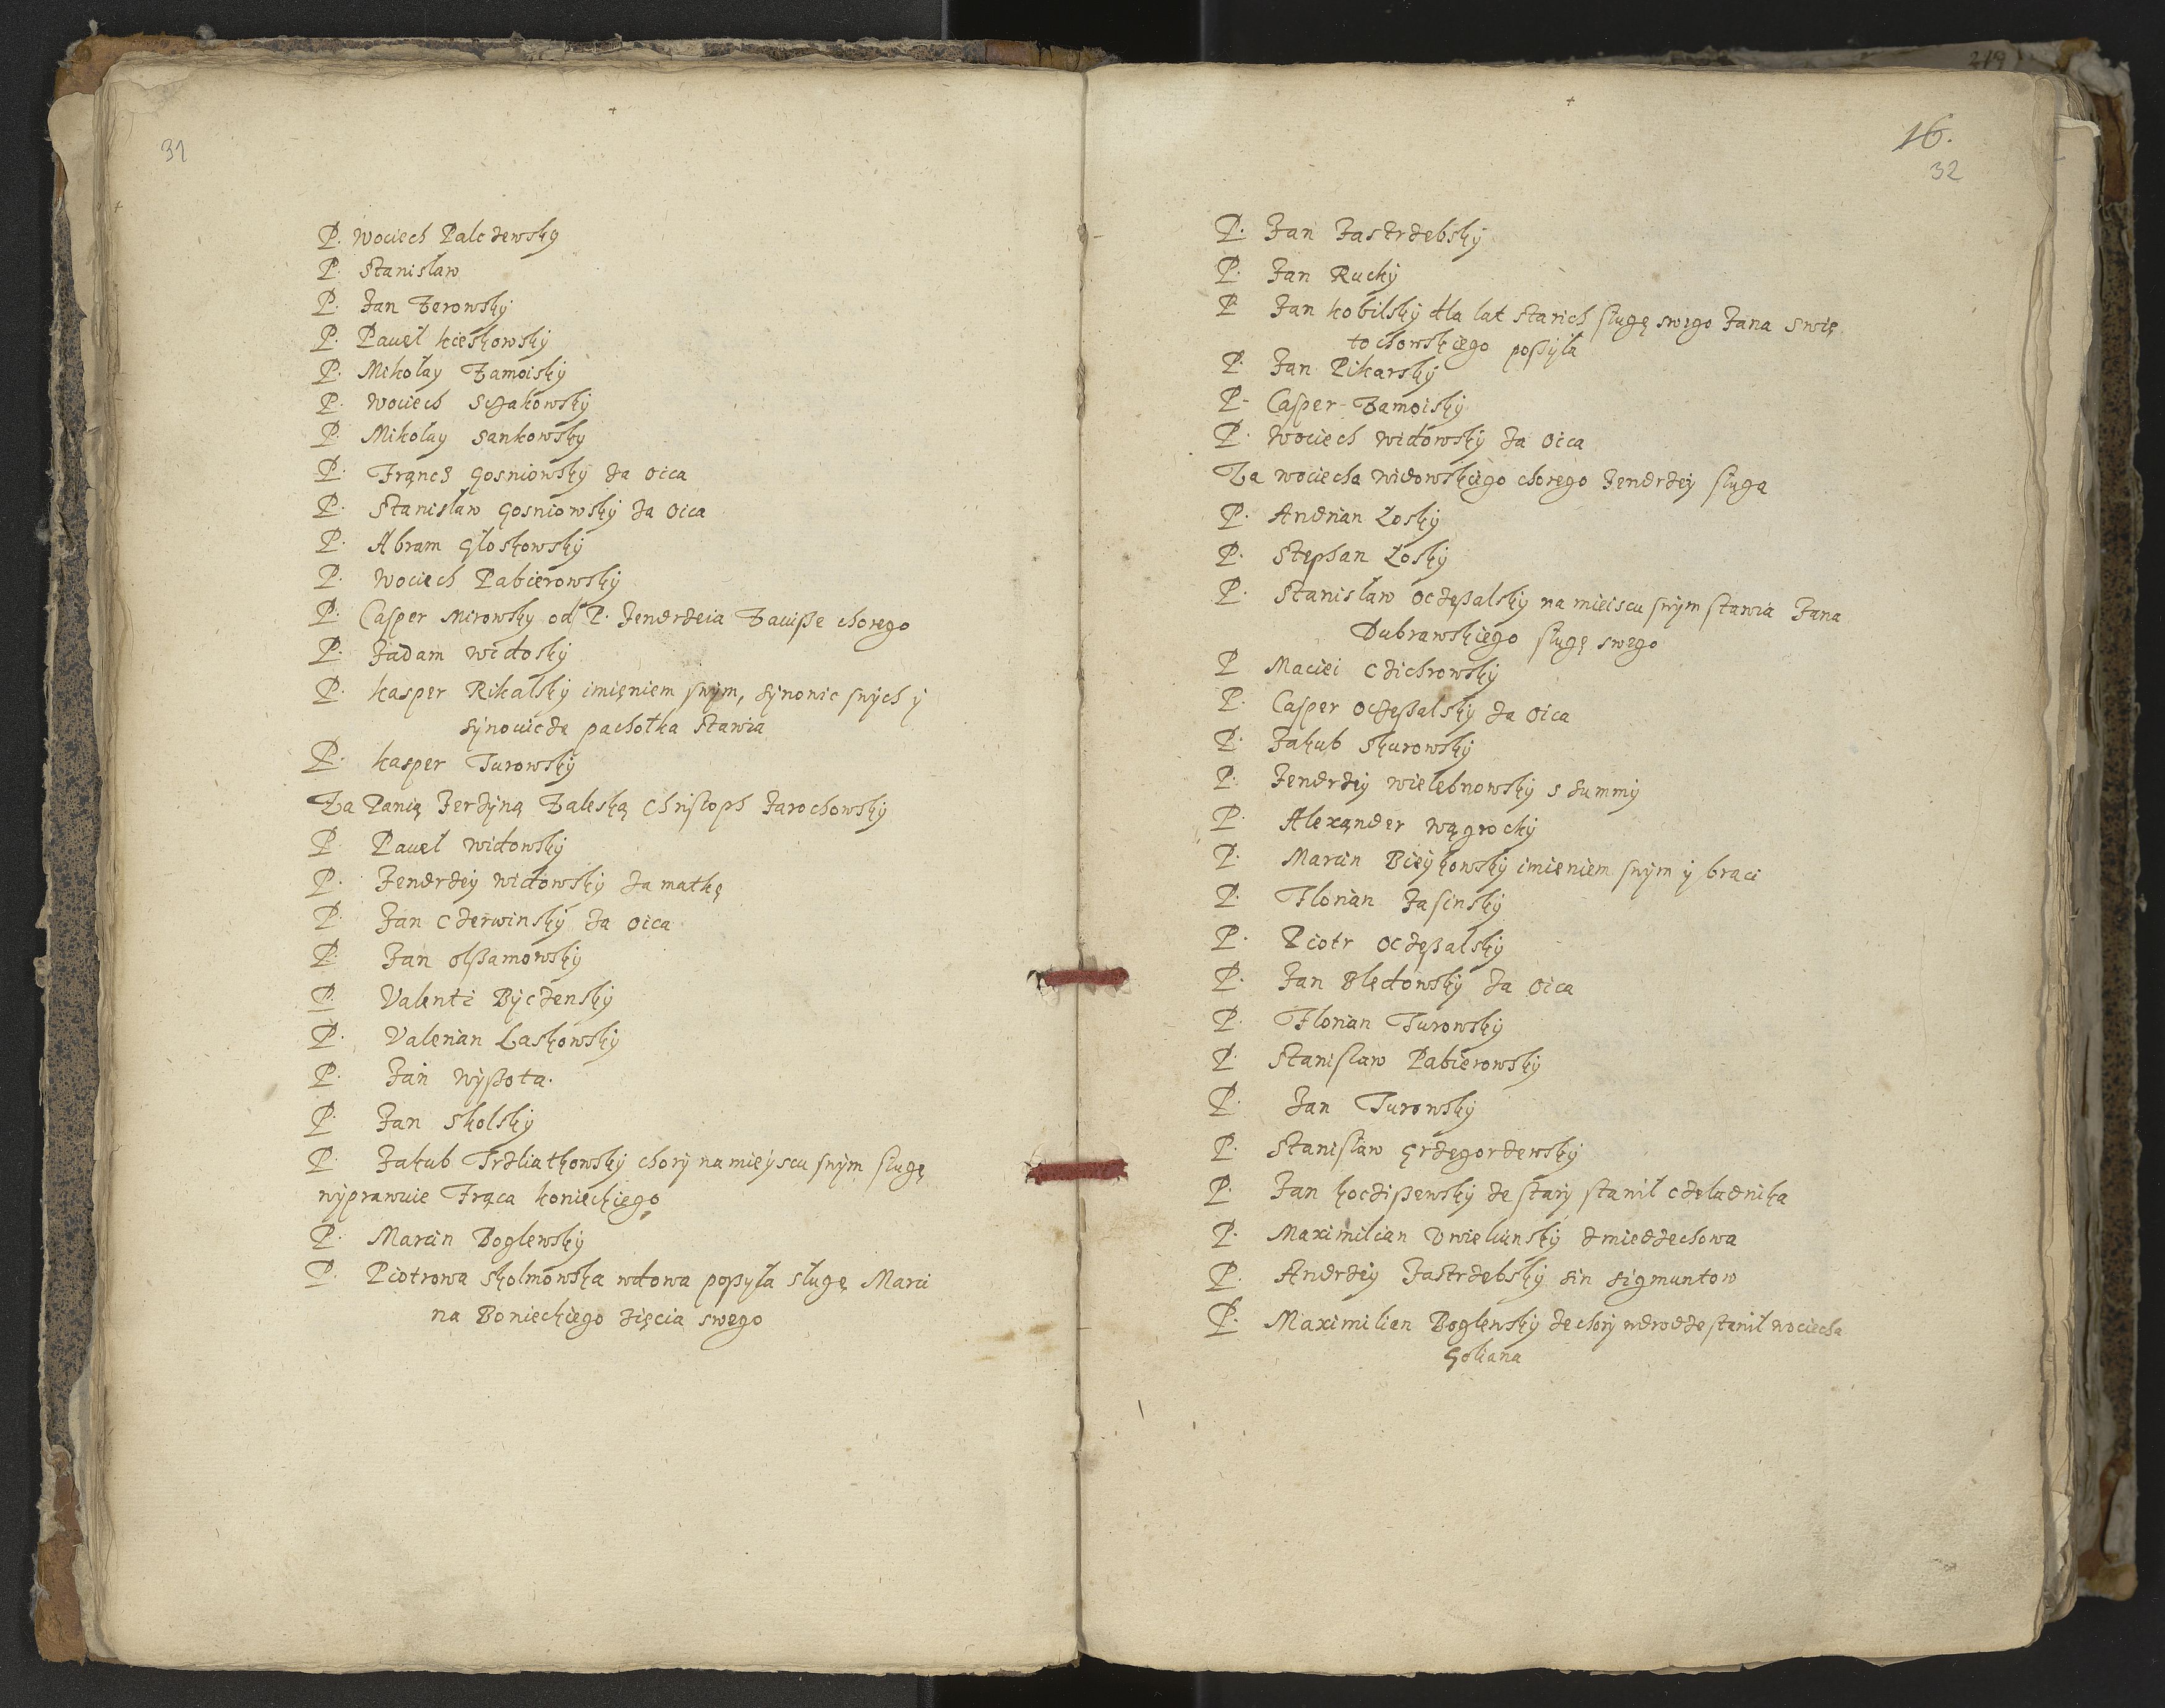 31
P. Wociech Palczewsky
P. Stanisław
P. Jan Zerowsky
P. Paweł Kieskowsky
P. Mikołay Zamoisky
P. Wociech Sczakowsky
P. Mikołay Sankowsky
P. Francz Gosniowsky za oica
P. Stanisław Gosniowsky za oica
P. Abram Głoskowsky
P. Wociech Pabierowsky
P. Casper Mirowsky od P. Jendrzeia Zawisze chorego
P. Jadam Widosky
P. Kasper Rikalsky imięniem swym, synowic swych y
synowicza pachołka stawia
P. Kasper Turowsky
Za Panią Jerzyną Zaleską Christoph Jarochowsky
P. Paweł Widowsky
P. Jendrzey Widowsky za matkę
P. Jan Czerwinsky za oica
P. Jan Olszamowsky
P. Valenti Byczensky
P. Valerian Laskowsky
P. Jan Wyszota.
P. Jan Skolsky
P. Jakub Trzliatkowsky chory na mieyscu swym sługę
wyprawuie Frąca Konieckiego
P. Marcin Boglewsky
P. Piotrowa Skolmowska wdowa poszyła sługę Marci
na Bonieckiego zięcia swego
16.
32
P. Jan Jastrzebsky
P. Jan Rucky
P Jan Kobilsky dla lat starich sługę swego Jana Swię
tochowskiego poszyła
P. Jan Pikarsky
P. Casper Zamoisky
P. Wociech Widowsky za oica
Za Wociecha Widowskiego chorego Jendrzey sługa
P. Andrian Łosky
P. Stephan Łosky
P. Stanisław Oczeszalsky na mieiscu swym stawia Jana
Dubrawskiego sługę swego
P Maciei Czichrowsky
P. Casper Oczeszalsky za oica
P. Jakub Skurowsky
P. Jendrzey Wielebnowsky s summy
P. Alexander Wągrocky
P. Marcin Bieykowsky imieniem swym y braci
P. Florian Jasinsky
P. Piotr Oczeszalsky
P. Jan Bledowsky za oica
P. Florian Turowsky
P. Stanisław Pabierowsky
P. Jan Turowsky
P. Stanisław Grzegorzewsky
P. Jan Kocziszewsky ze stary stawił czeladnika
P. Maximilian Uwielunsky z Miedzechowa
P. Andrzey Jastrzebsky sin Sigmuntow
P. Maximilian Boglewsky ze chory w drodze stawił Wociecha
Goliana
219